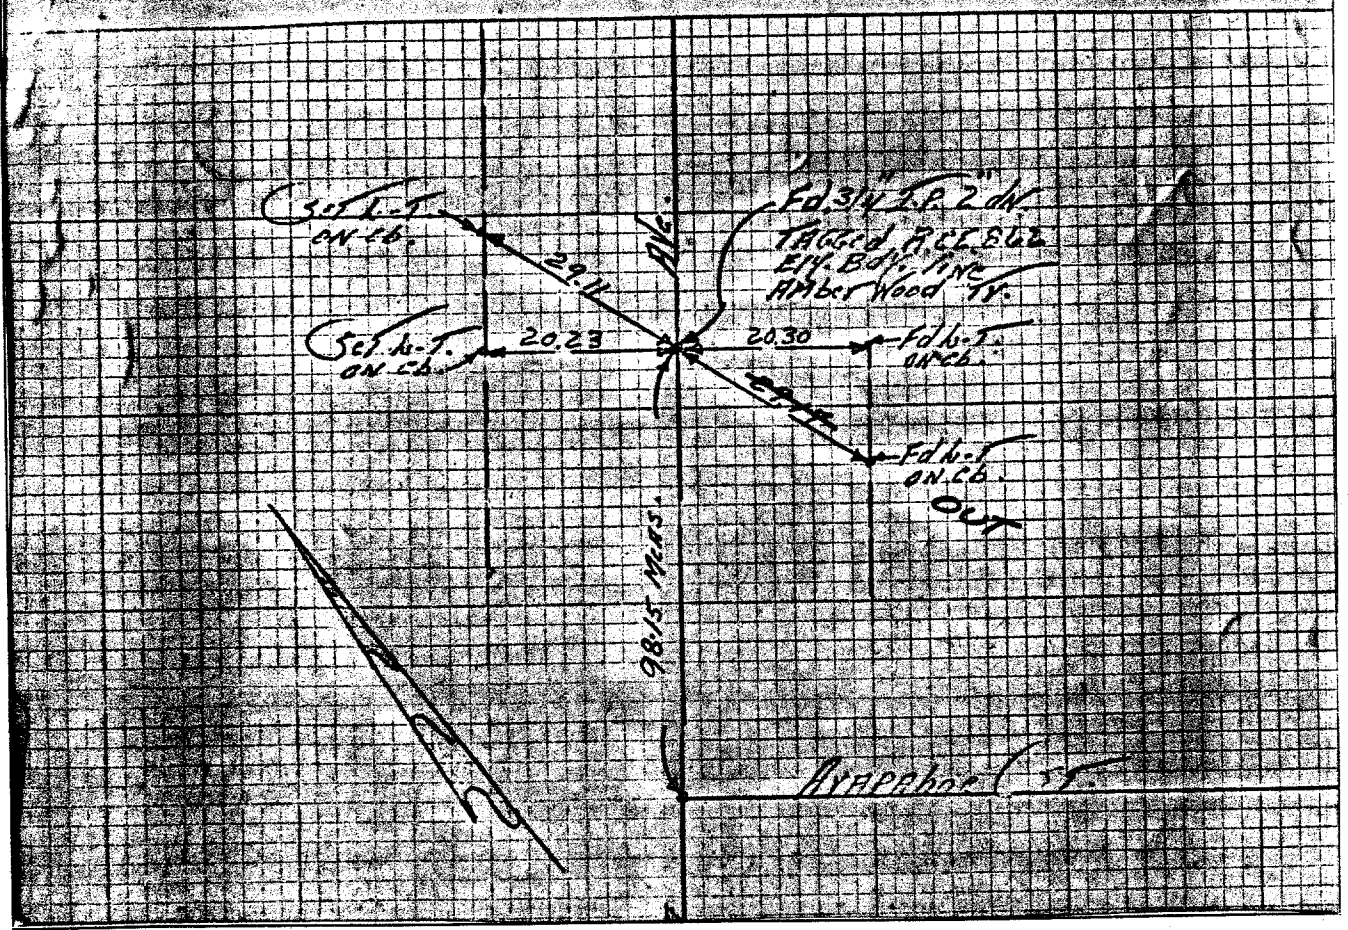 Set L-T
on cb.
Ave.
Fd. 3/4" I.P. 2" dN.
TAGGed R.CE. 862
Ely. Bdy. line
Amber Wood Tr.
29.11
Set L-T.
on cb.
20.23
20.30
Fd L-T.
on cb.
Fd L-T
on cb.
OUT
98.15 Meas.
Arapahoe St.